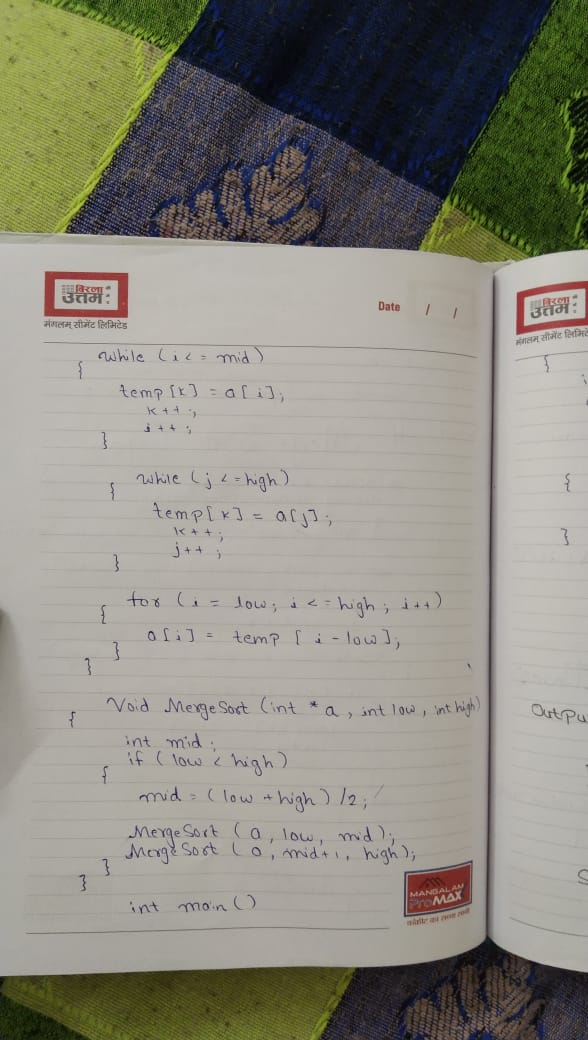 बिरला
उत्तम
मंगलम् सीमेंट लिमिटेड
Date / /
while (i <= mid)
{
temp [k] = a[i];
k++;
i++;
}
while (j <= high)
{
temp[k] = a[j];
k++;
j++;
}
for (i = low; i <= high; i++)
{
a[i] = temp [i - low];
}
}
Void MergeSort (int *a, int low, int high)
{
int mid;
if (low < high)
{
mid = (low + high) /2;
MergeSort (a, low, mid);
MergeSort (a, mid+1, high);
}
}
int main ()
MANGALAM
ProMAX
बिरला
उत्तम
मंगलम् सीमेंट
{
{
}
Outpu